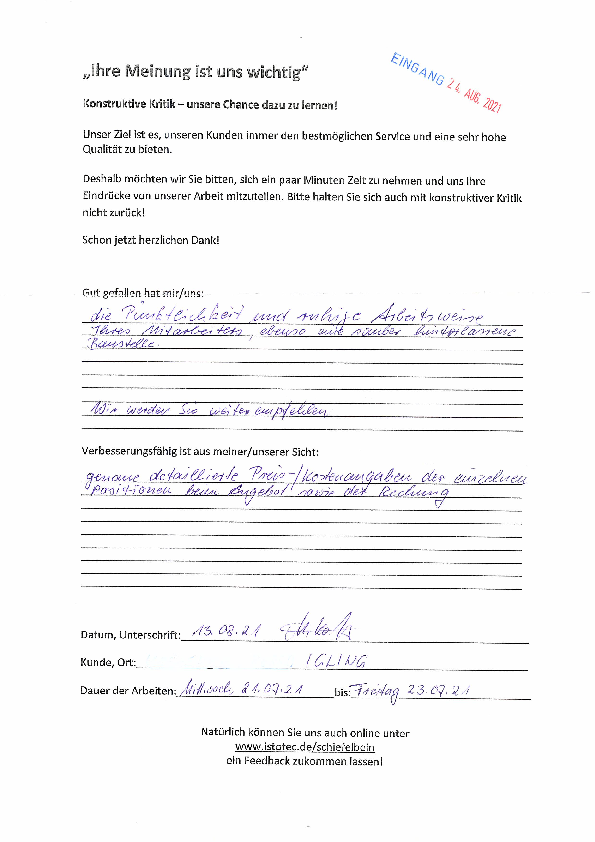 „Ihre Meinung ist uns wichtig“
EINGANG 24. AUG. 2021
Konstruktive Kritik – unsere Chance dazu zu lernen!
Unser Ziel ist es, unseren Kunden immer den bestmöglichen Service und eine sehr hohe
Qualität zu bieten.
Deshalb möchten wir Sie bitten, sich ein paar Minuten Zeit zu nehmen und uns Ihre
Eindrücke von unserer Arbeit mitzuteilen. Bitte halten Sie sich auch mit konstruktiver Kritik
nicht zurück!
Schon jetzt herzlichen Dank!
Gut gefallen hat mir/uns:
die Pünktlichkeit und ruhige Arbeitsweise
Ihres Mitarbeiters, ebenso die sauber hinterlassene
Baustelle.
Wir werden Sie weiterempfehlen
Verbesserungsfähig ist aus meiner/unserer Sicht:
genaue detaillierte Preis-/Kostenangaben der einzelnen
Positionen beim Angebot sowie der Rechnung
Datum, Unterschrift: 13.08.21
Kunde, Ort: IGLING
Dauer der Arbeiten: Mittwoch, 21.07.21 bis: Freitag 23.07.21
Natürlich können Sie uns auch online unter
www.istotec.de/schiefelbein
ein Feedback zukommen lassen!